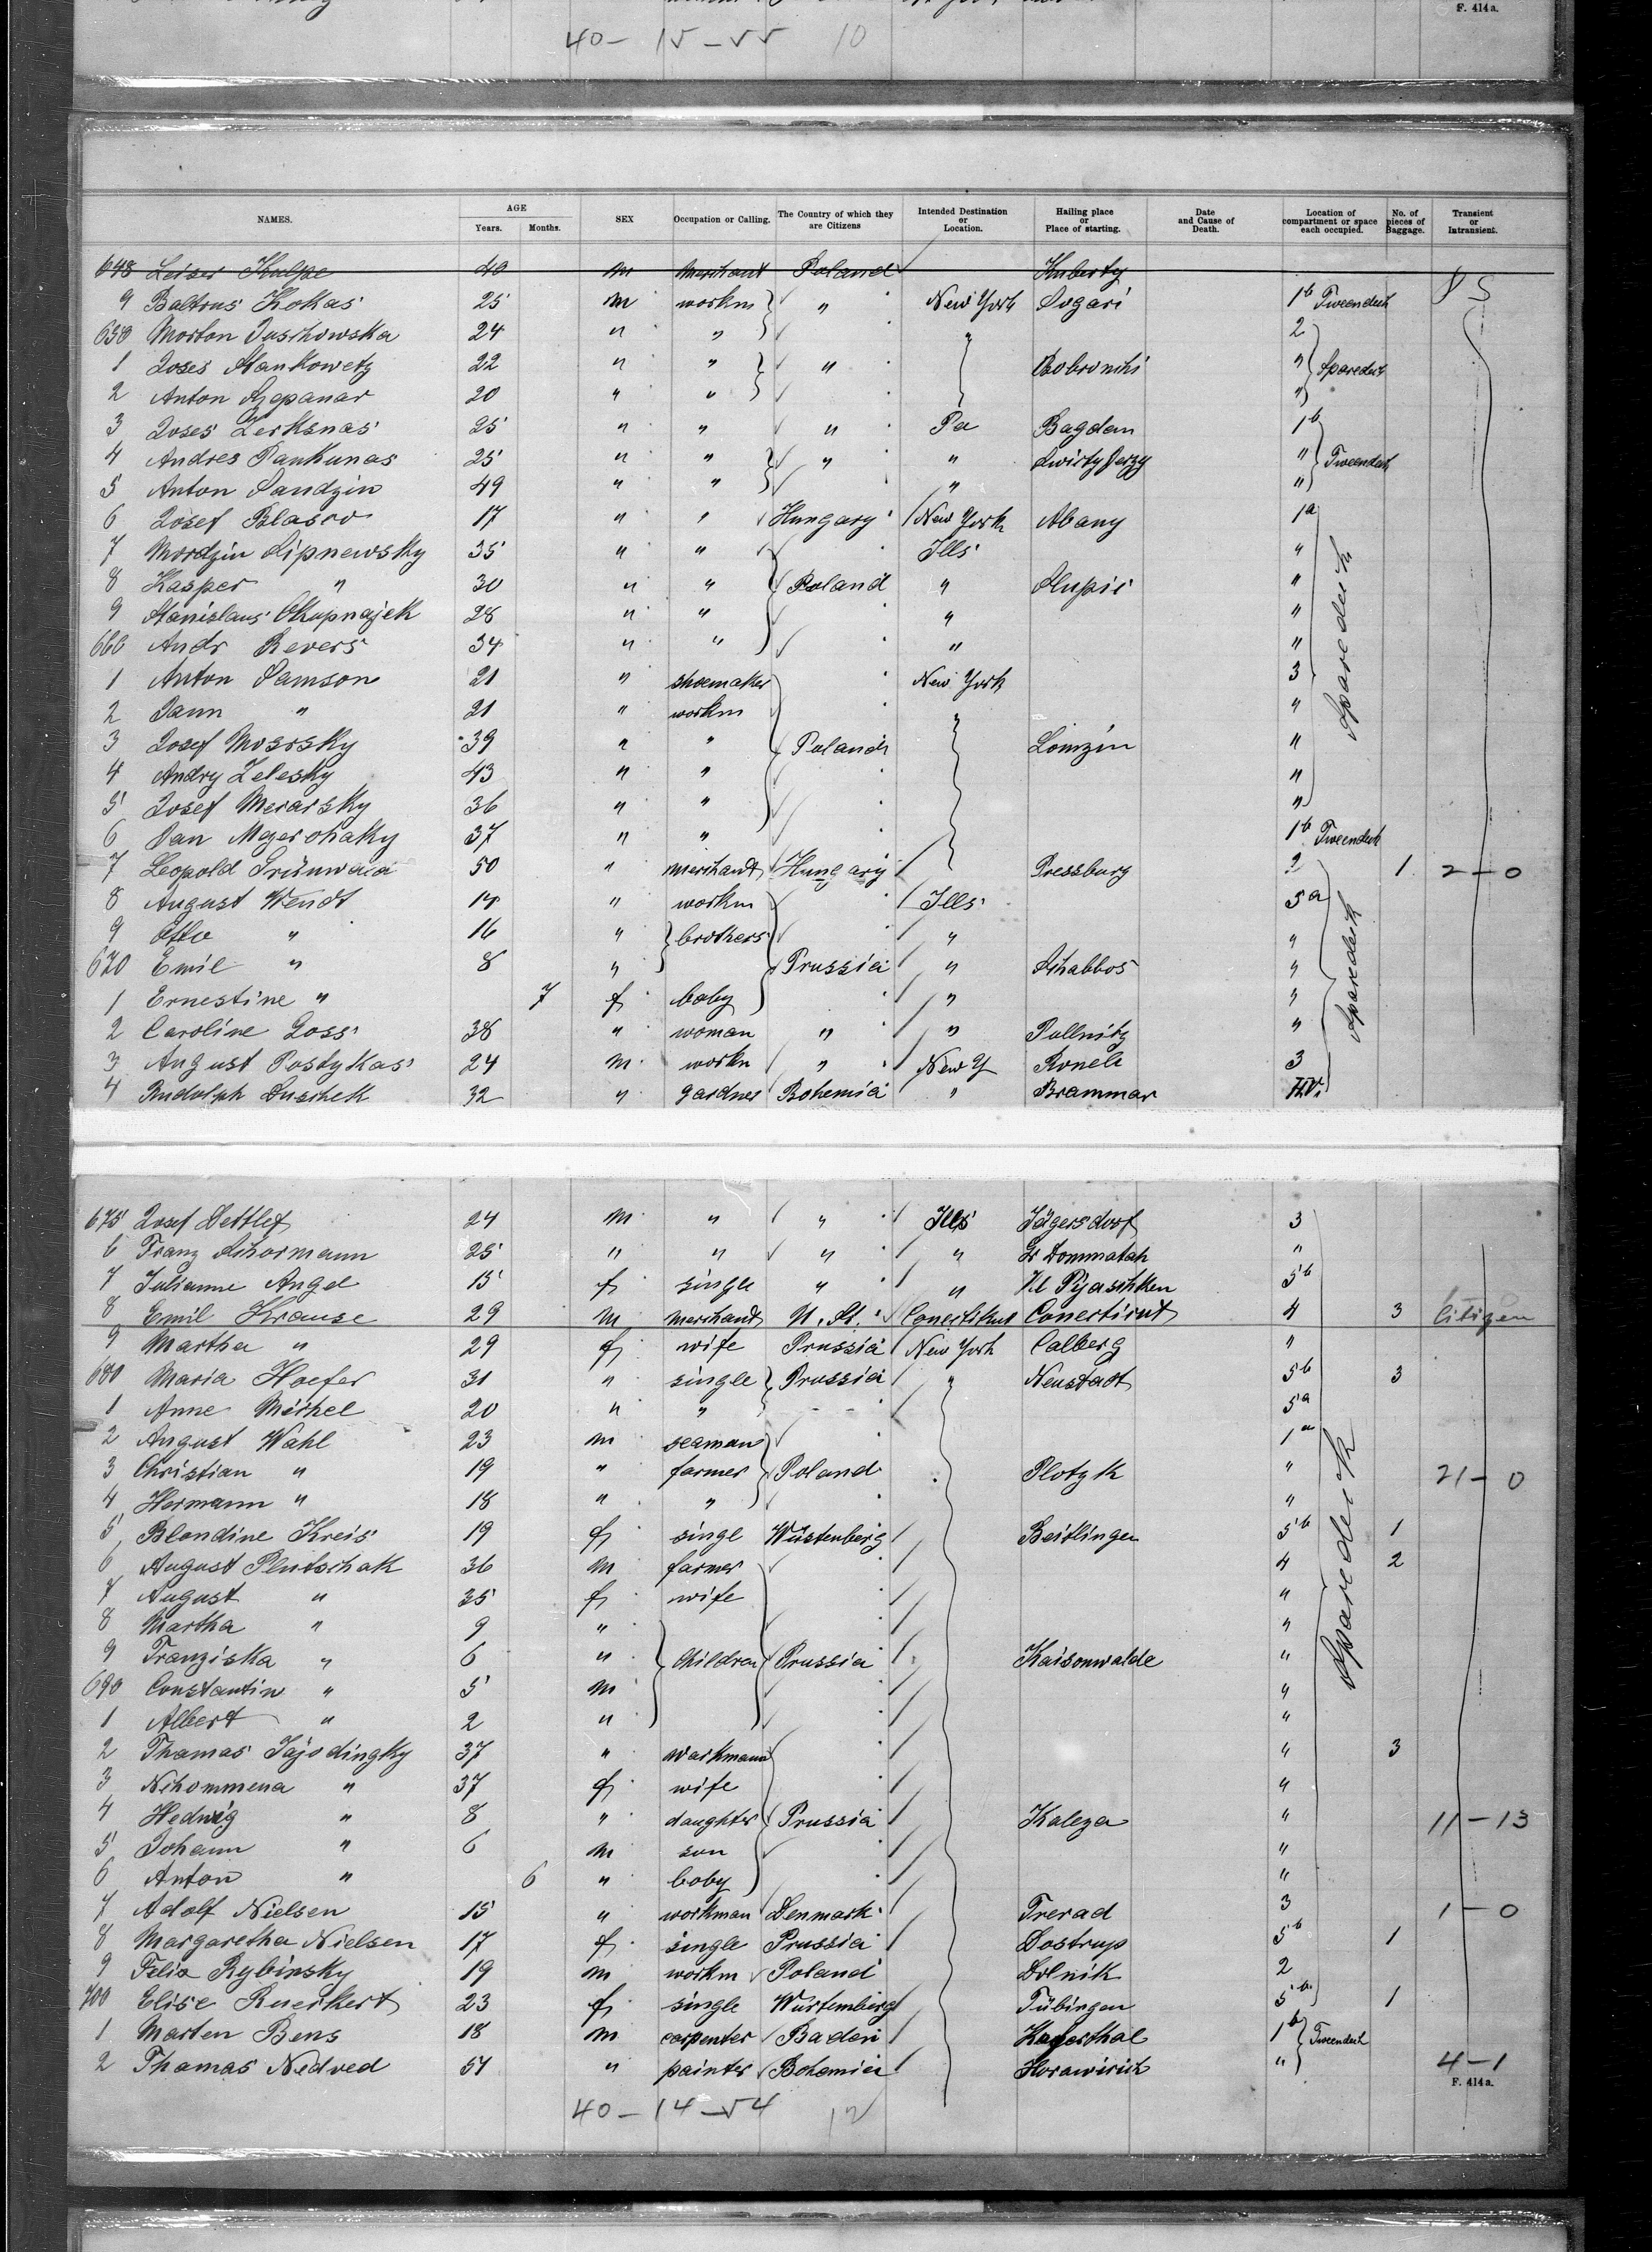 F. 414a.
40 - 15 - 55 10
NAMES. AGE Years. Months. SEX Occupation or Calling. The Country of which they are Citizens Intended Destination or Location. Hailing place or Place of starting. Date and Cause of Death. Location of compartment or space each occupied. No. of pieces of Baggage. Transient or Intransient.
648 Leiser Kulpe 40 m merchant Poland Kuberty
9 Baltrus Kokas 25 m workm " New York Sogari 1b Tweendeck
650 Morton Juschowska 24 " " " 2
1 Joses Stankowetz 22 " " " Bobroniki " Sparedeck
2 Anton Szepanar 20 " " "
3 Joses Zerksnas 25 " " " Pa Bagdan 1b
4 Andres Pankunas 25 " " " " " Tweendeck
5 Anton Sandzin 49 " " " "
6 Josef Blasov 17 " " Hungary New York Abany 1a
7 Mordzin Lipnewsky 35 " " Ills "
8 Kasper " 30 " " Poland " Slupic "
9 Stanislaus 28 " " " "
660 Andr Revers 34 " " " "
1 Anton Samson 21 " shoemaker New York 3 Sparedeck
2 Jann " 21 " workm " "
3 Josef Mososky 39 " " Poland Lomzin "
4 Andry Zelesky 43 " " "
5 Josef Merarsky 36 " " "
6 Jan 37 " " 1b Tweendeck
7 Leopold Grünwald 50 " merchant Hungary Pressburg 2 1 2 - 0
8 August Wendt 17 " workm Ills 5a
9 Otto " 16 " brothers " "
670 Emil " 8 " Prussia " Schabbos " Sparedeck
1 Ernestine " 7 f baby " "
2 Caroline Goss 38 " woman " " Pollnitz "
3 August Postykas 24 m workn " New Y Roneli 3
4 Rudolph Duschek 32 " gardner Bohemia " Brammar
675 Josef Dettlef 24 m " " Ills Jägersdorf 3
6 Franz Schormann 25 " " " " Gr Dommatah "
7 Julianne Angel 15 f single " " Kl Pijaschken 5b
8 Emil Krause 29 m merchant U. St. Conectikut Conecticut 4 3 Citizen
9 Martha " 29 f wife Prussia New York Calberg "
680 Maria Hoefer 31 " single Prussia " Neustadt 5b 3
1 Anne Michel 20 " " 5a
2 August Wahl 23 m seaman 1a
3 Christian " 19 " farmer Poland Plotzk " 21 - 0
4 Hermann " 18 " " "
5 Blondine Kreis 19 f singl Würtenberg Beitlingen 5b 1
6 August Plutschak 36 m farmer 4 2
7 August " 35 f wife "
8 Martha " 9 " " Sparedeck
9 Franziska " 6 " Children Prussia Kaisonwalde "
690 Constantin " 5 m "
1 Albert " 2 " "
2 Thamas Jajodingky 37 " workmann " 3
3 Nihommena " 37 f wife "
4 Hedwig " 8 " daughter Prussia Kaleza " 11 - 13
5 Johann " 6 m son "
6 Anton " 6 " boby "
7 Adolf Nielsen 15 " workman Denmark Trerad 3 1 - 0
8 Margaretha Nielsen 17 f single Prussia Dostrup 5b 1
9 Felix Rybinsky 19 m workm Poland Dolnik 2
700 Elise Rueckert 23 f single Würtemberg Tübingen 5b 1
1 Marten Bens 18 m carpenter Baden Kaferthal 1b Tweendeck
2 Thamas Nedved 51 " painter Bohemia Horawirich " 4 - 1
F. 414a.
40 - 14 - 54 12